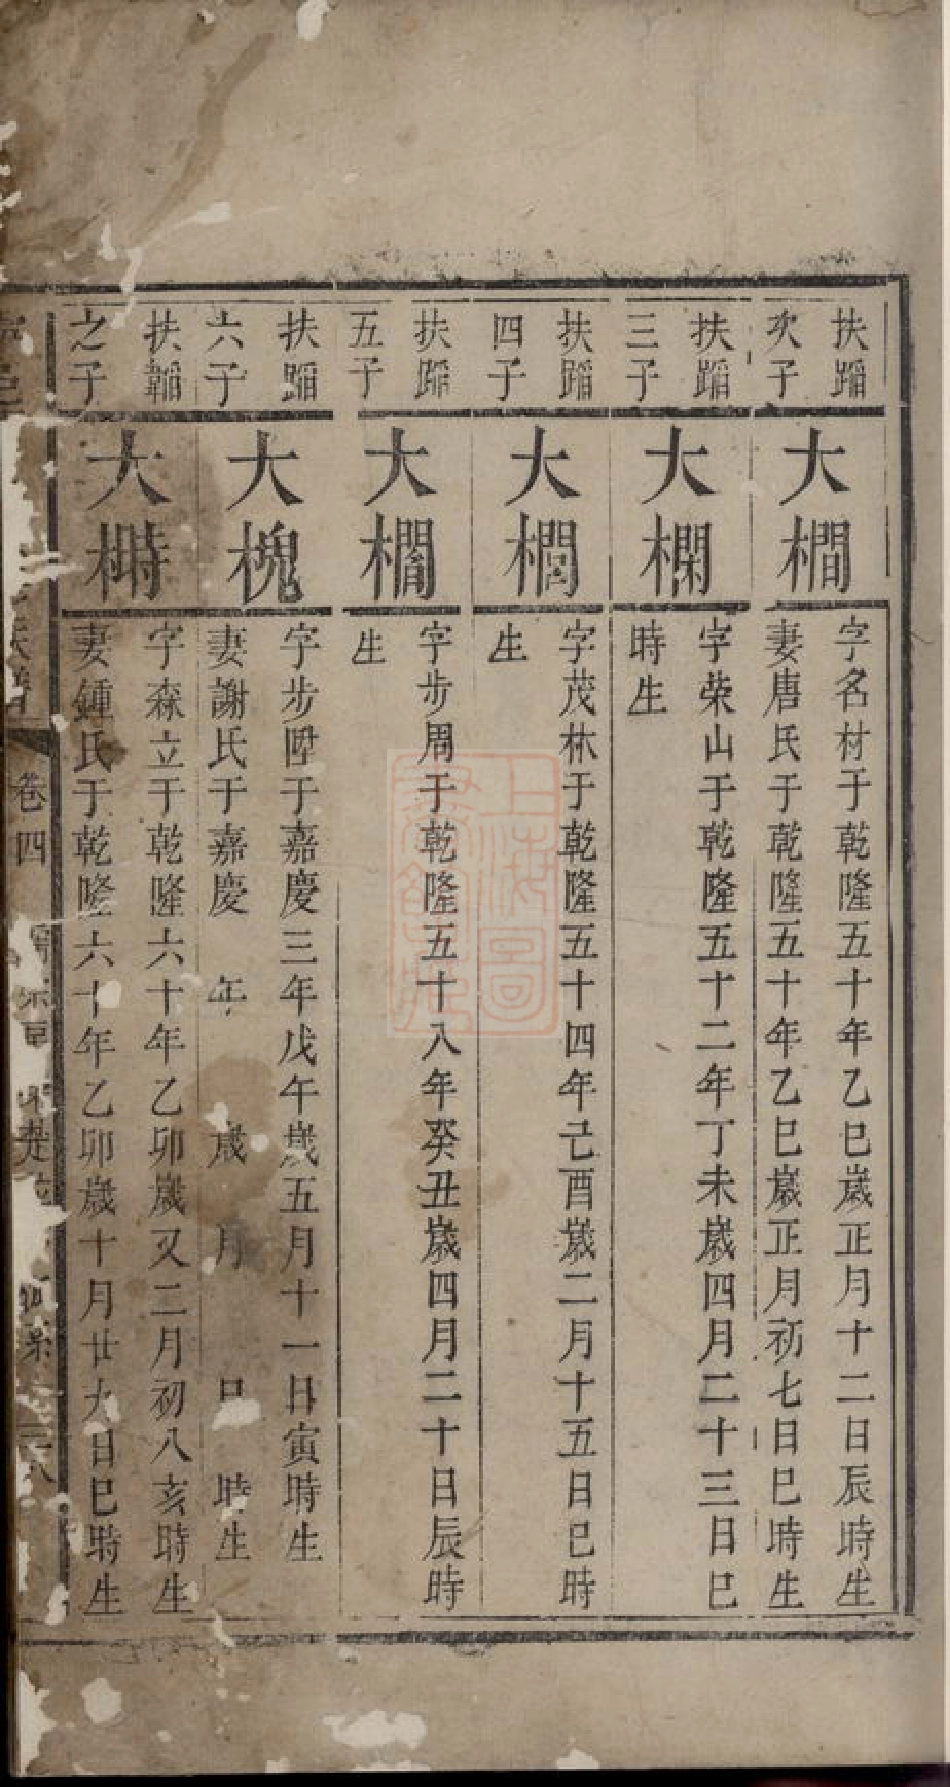 扶蹈
次子
大橺
字名材于乾隆五十年乙巳歲正月十二日辰時生
妻唐氏于乾隆五十年乙巳歲正月初七日巳時生
扶蹈
三子
大橌
字荣山于乾隆五十二年丁未歲四月二十三日巳
時生
扶蹈
四子
大
字茂林于乾隆五十四年己酉歲二月十五日巳時
生
扶蹈
五子
大
字步周于乾隆五十八年癸丑歲四月二十日辰時
生
扶蹈
六子
大槐
字步陞于嘉慶三年戊午歲五月十一日寅時生
妻謝氏于嘉慶 年 歲 月 日 時生
扶韜
之子
大榯
字森立于乾隆六十年乙卯歲又二月初八亥時生
妻鍾氏于乾隆六十年乙卯歲十月廿九日巳時生
卷四
上海圖書館藏